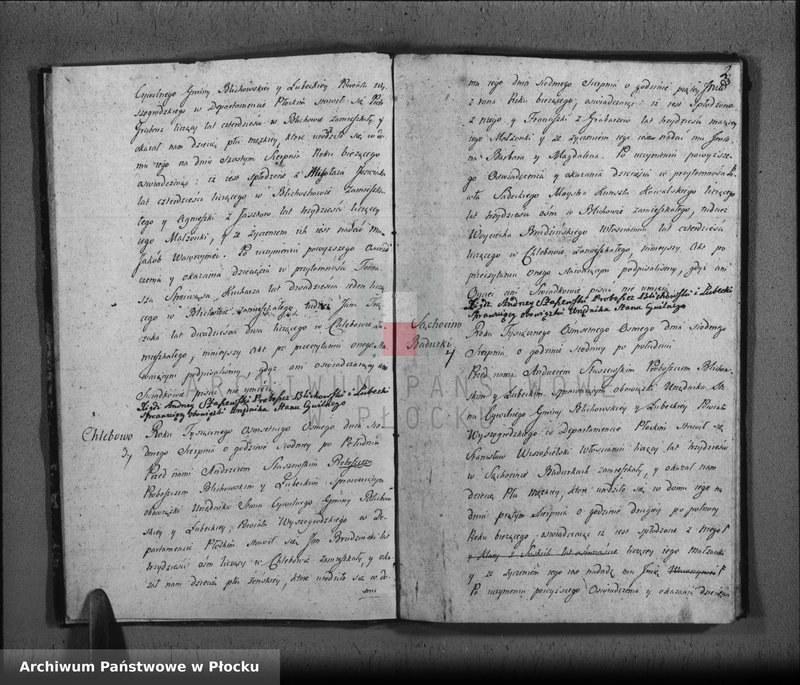 Cywilnego Gminy Blichowskiey y Lubeckiey Powiatu Wy-
szogrodzkiego w Departamencie Płockim stawił się
Grabarz liczący lat czterdzieści w Blichowie zamieszkały y
okazał nam dziecię płci męzkiey, które urodziło się w do-
mu iego na dniu szóstym Sierpnia Roku bieżącego
oswiadczaiąc: iż iest spłodzone z
lat czterdziesci liczącego w Blichowie Zamieszka-
łego y Agnieszki z lat trzydziesci liczącey
iego Małżonki, y ze życzeniem ich iest nadać mu
Jakób Wawrzyniec. Po uczynieniu powyższego Oswiad-
czenia y okazania dziecięcia w przytomności Toma-
sza Kucharza lat dwadziescia ieden liczą-
cego w Blichowie zamieszkałego tudzież Jana
lat dwadziescia dwa liczącego w Chlebowie za-
mieszkałego, ninieyszy Akt po przeczytaniu onego Sta-
waiącym podpisaliśmy, gdyż ani oswiadczaiący ani
Swiadkowie pisać nie umieią
Xiądz Andrzey Proboszcz Blichowski i Lubecki
Sprawuiący obowiązki Urzędnika Stanu Cywilnego
Chlebowo
3,
Roku Tysiącznego Osmsetnego Osmego dnia Sió-
dmego Sierpnia o godzinie siódmey po Południu
Przed nami Andrzeiem Proboszcz
Proboszczem Blichowskim y Lubeckim Sprawuiącym
obowiązki Urzędnika Stanu Cywilnego Gminy Blichow-
skiey y Lubeckiey, Powiatu Wyszogrodzkiego w De-
partamencie Płockim stawił się Jan Brudzinski lat
trzydziesci ośm liczący w Chlebowie zamieszkały, y oka-
zał nam dziecię płci żenskiey, które urodziło się w do-
mu
3
mu iego dnia siódmego Sierpnia o godzinie piątey
z rana Roku bieżącego, oswiadczaiąc: iż iest spłodzone
z niego y Franciszki z lat trzydziesci maiącey
iego Małżonki y ze życzeniem iego iest nadać mu Imio-
na Barbara y Magdalena. Po uczynieniu powyższe-
go Oswiadczenia y okazania dziecięcia w przytomności
Maystra Kunsztu Kowalskiego liczącego
lat trzydziesci ośm w Blichowie zamieszkałego, tudzież
Woyciecha Brudzinskiego Włoscianina lat czterdziesci
liczącego w Chlebowie Zamieszkałego ninieyszy Akt po
przeczytaniu onego stawaiącym podpisaliśmy, gdyż ani
Oyciec ani Swiadkowie pisać nie umieią
Xiądz Andrzey Proboszcz Blichowski i Lubecki
Sprawuiący obowiązki Urzędnika Stanu Cywilnego
Sąchocino
Badurki
4
Roku Tysiącznego Osmsetnego Osmego dnia siódmego
Sierpnia o godzinie siódmey po południu
Przed nami Andrzeiem Proboszczem Blichow-
skim y Lubeckim Sprawuiącym obowiązki Urzędnika Sta-
nu Cywilnego Gminy Blichowskiey y Lubeckiey Powiatu
Wyszogrodzkiego w Departamencie Płockim Stawił się
Stanisław Włoscianin liczący lat trzydziesci
w Sąchocinie Badurkach zamieszkały, y okazał nam
dziecię Płci męzkiey, które urodziło się w domu iego na
dniu piątym Sierpnia o godzinie drugiey po północy
Roku bieżącego, oswiadczaiąc iż iest spłodzone z niego
liczącey iego Małżonki
y ze życzeniem iego iest nadać mu Imię
Po uczynieniu powyższego Oswiadczenia y okazaniu dziecięcia
ARCHIWUM PAŃSTWOWE
W PŁOCKU
Archiwum Państwowe w Płocku